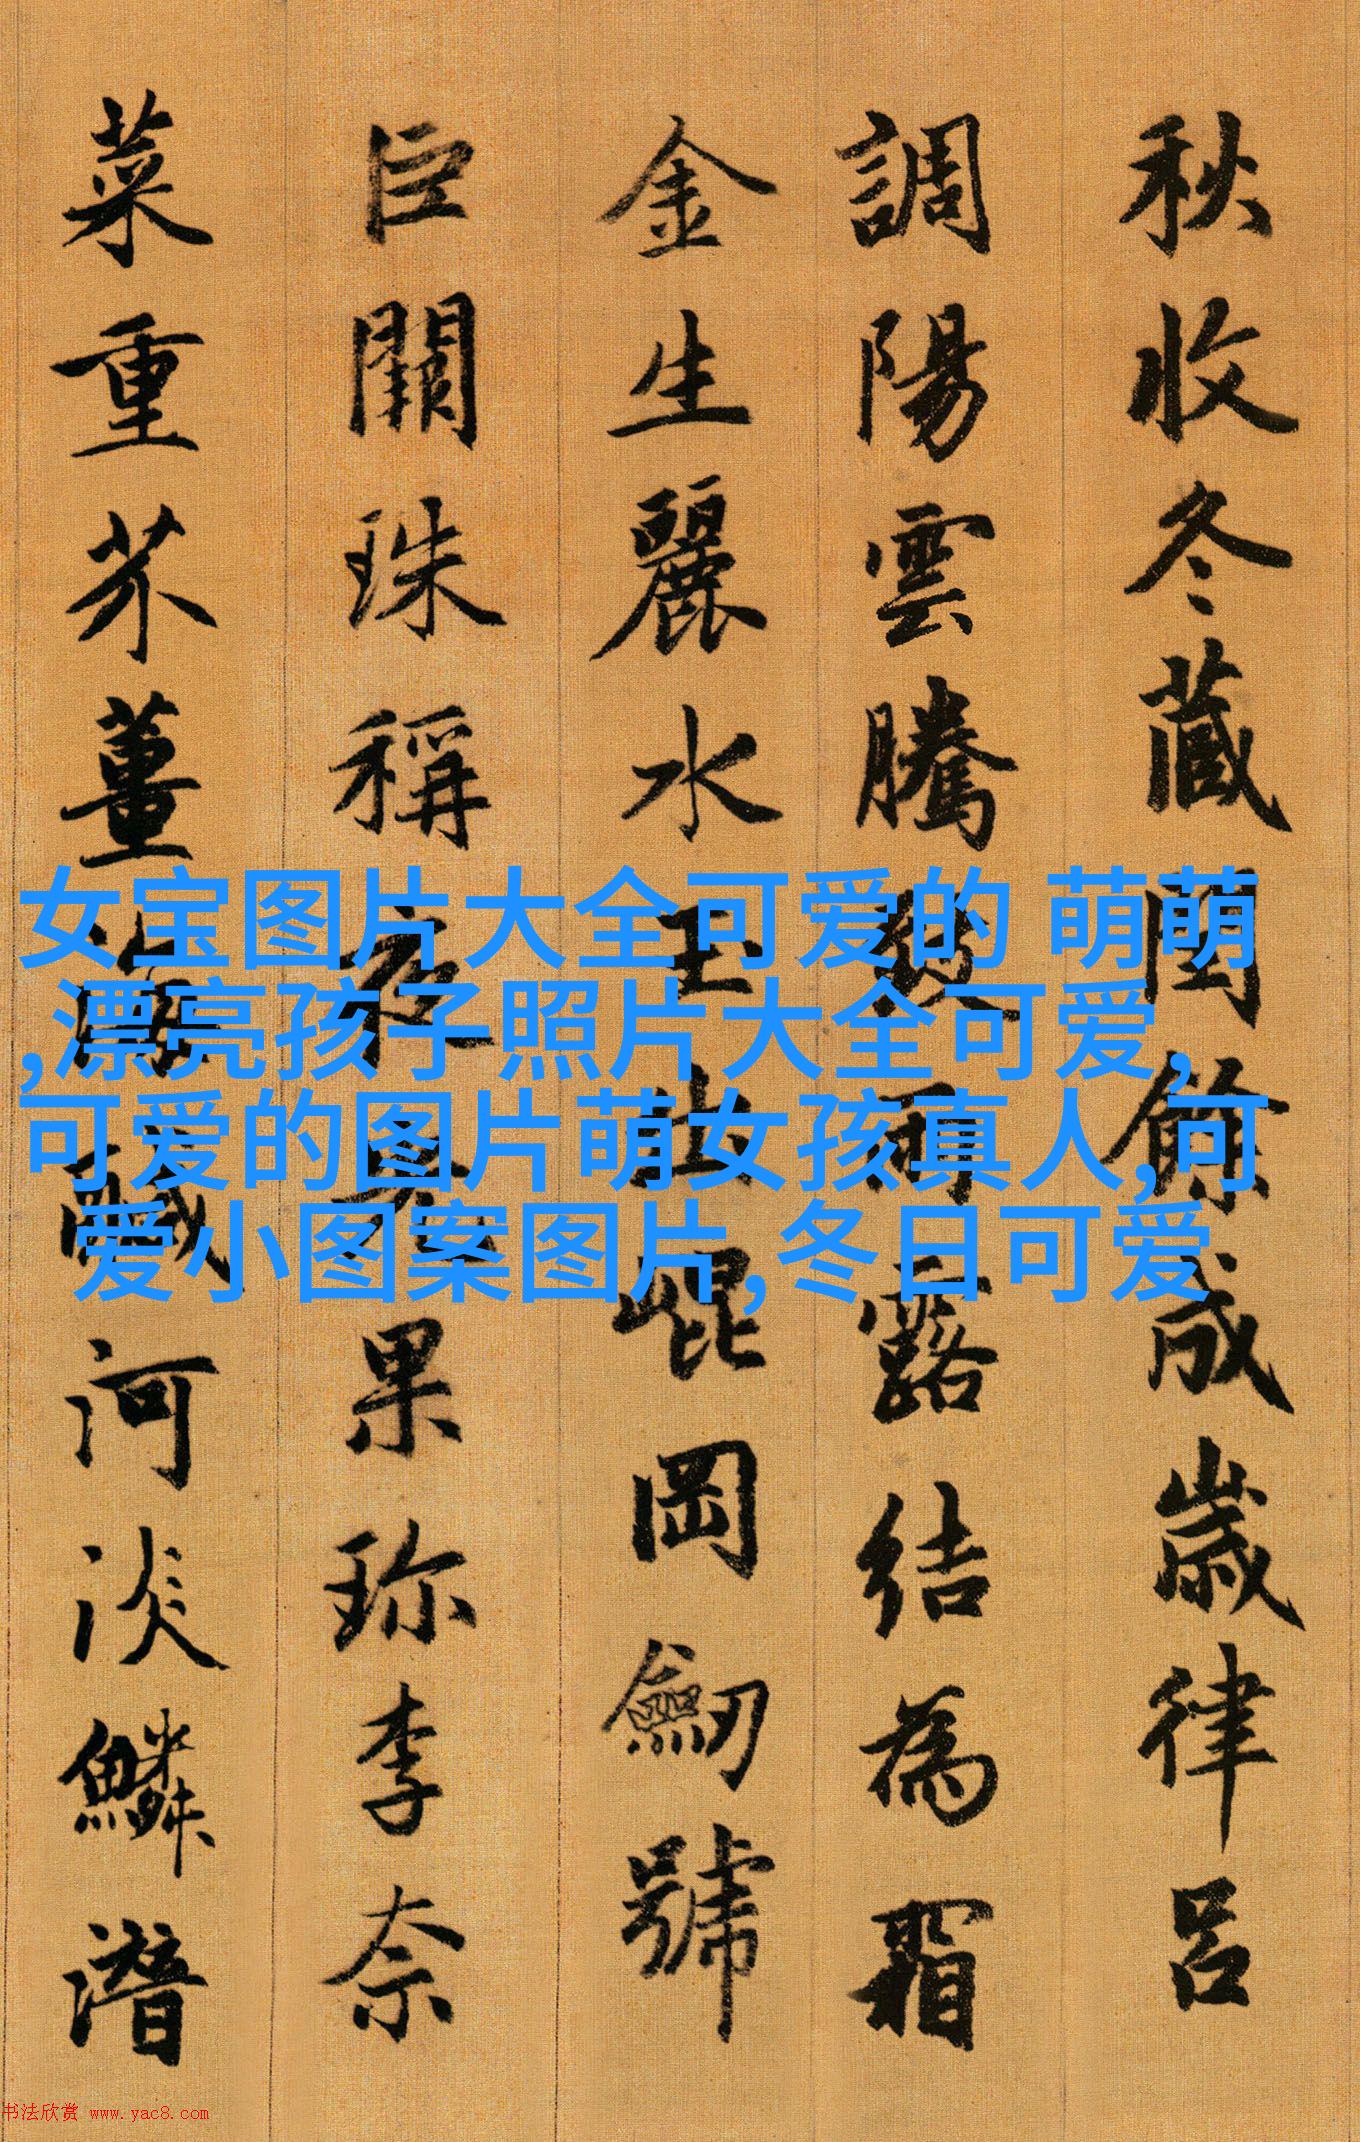 秋收冬藏閏餘成歲律呂
調陽雲騰致雨露結為霜
金生麗水玉出崐岡劒號
巨闕珠稱夜光果珍李奈
菜重芥薑海鹹河淡鱗潛
女宝图片大全可爱的 萌萌
,漂亮孩子照片大全可爱,
可爱的图片萌女孩真人,可
爱小图案图片,冬日可爱
书法欣赏 www.yac8.com